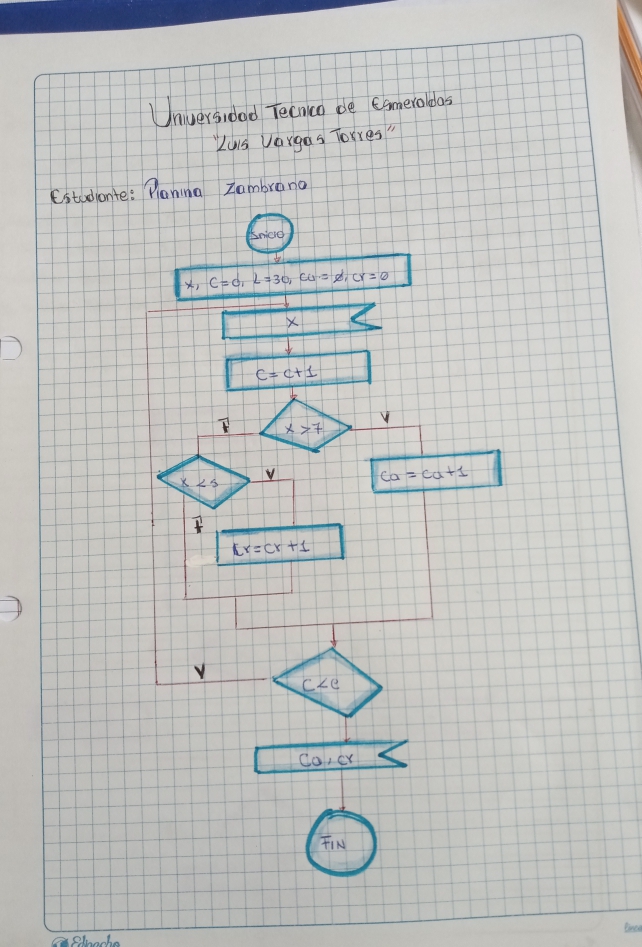 Universidad Tecnica de Esmeraldas
"Luis Vargas Torres"
Estudiante: Pianina Zambrano
Inicio
x, C=0, L=30, ca=0, cr=0
x
C=C+1
x >7
F
V
x <5
V
Ca = Ca+1
F
Cr=Cr+1
C<e
V
Ca, cr
FIN